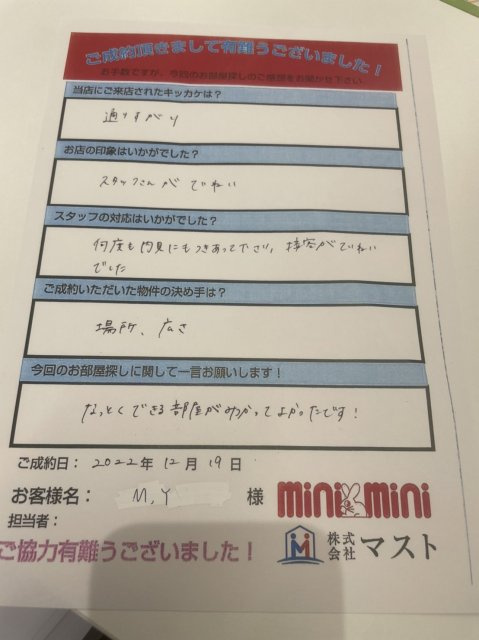 ご成約頂きまして有難うございました！
お手数ですが、今回のお部屋探しのご感想をお聞かせ下さい。
当店にご来店されたキッカケは？
通りすがり
お店の印象はいかがでした？
スタッフさんが ていねい
スタッフの対応はいかがでした？
何度も内見にもつきあって下さい、接客がていねい
でした
ご成約いただいた物件の決め手は？
場所、広さ
今回のお部屋探しに関して一言お願いします！
なっとくできる部屋がみつかってよかったです！
ご成約日： 2022年 12月 19日
お客様名： M,Y 様
mini mini
担当者：
株式会社マスト
ご協力有難うございました！